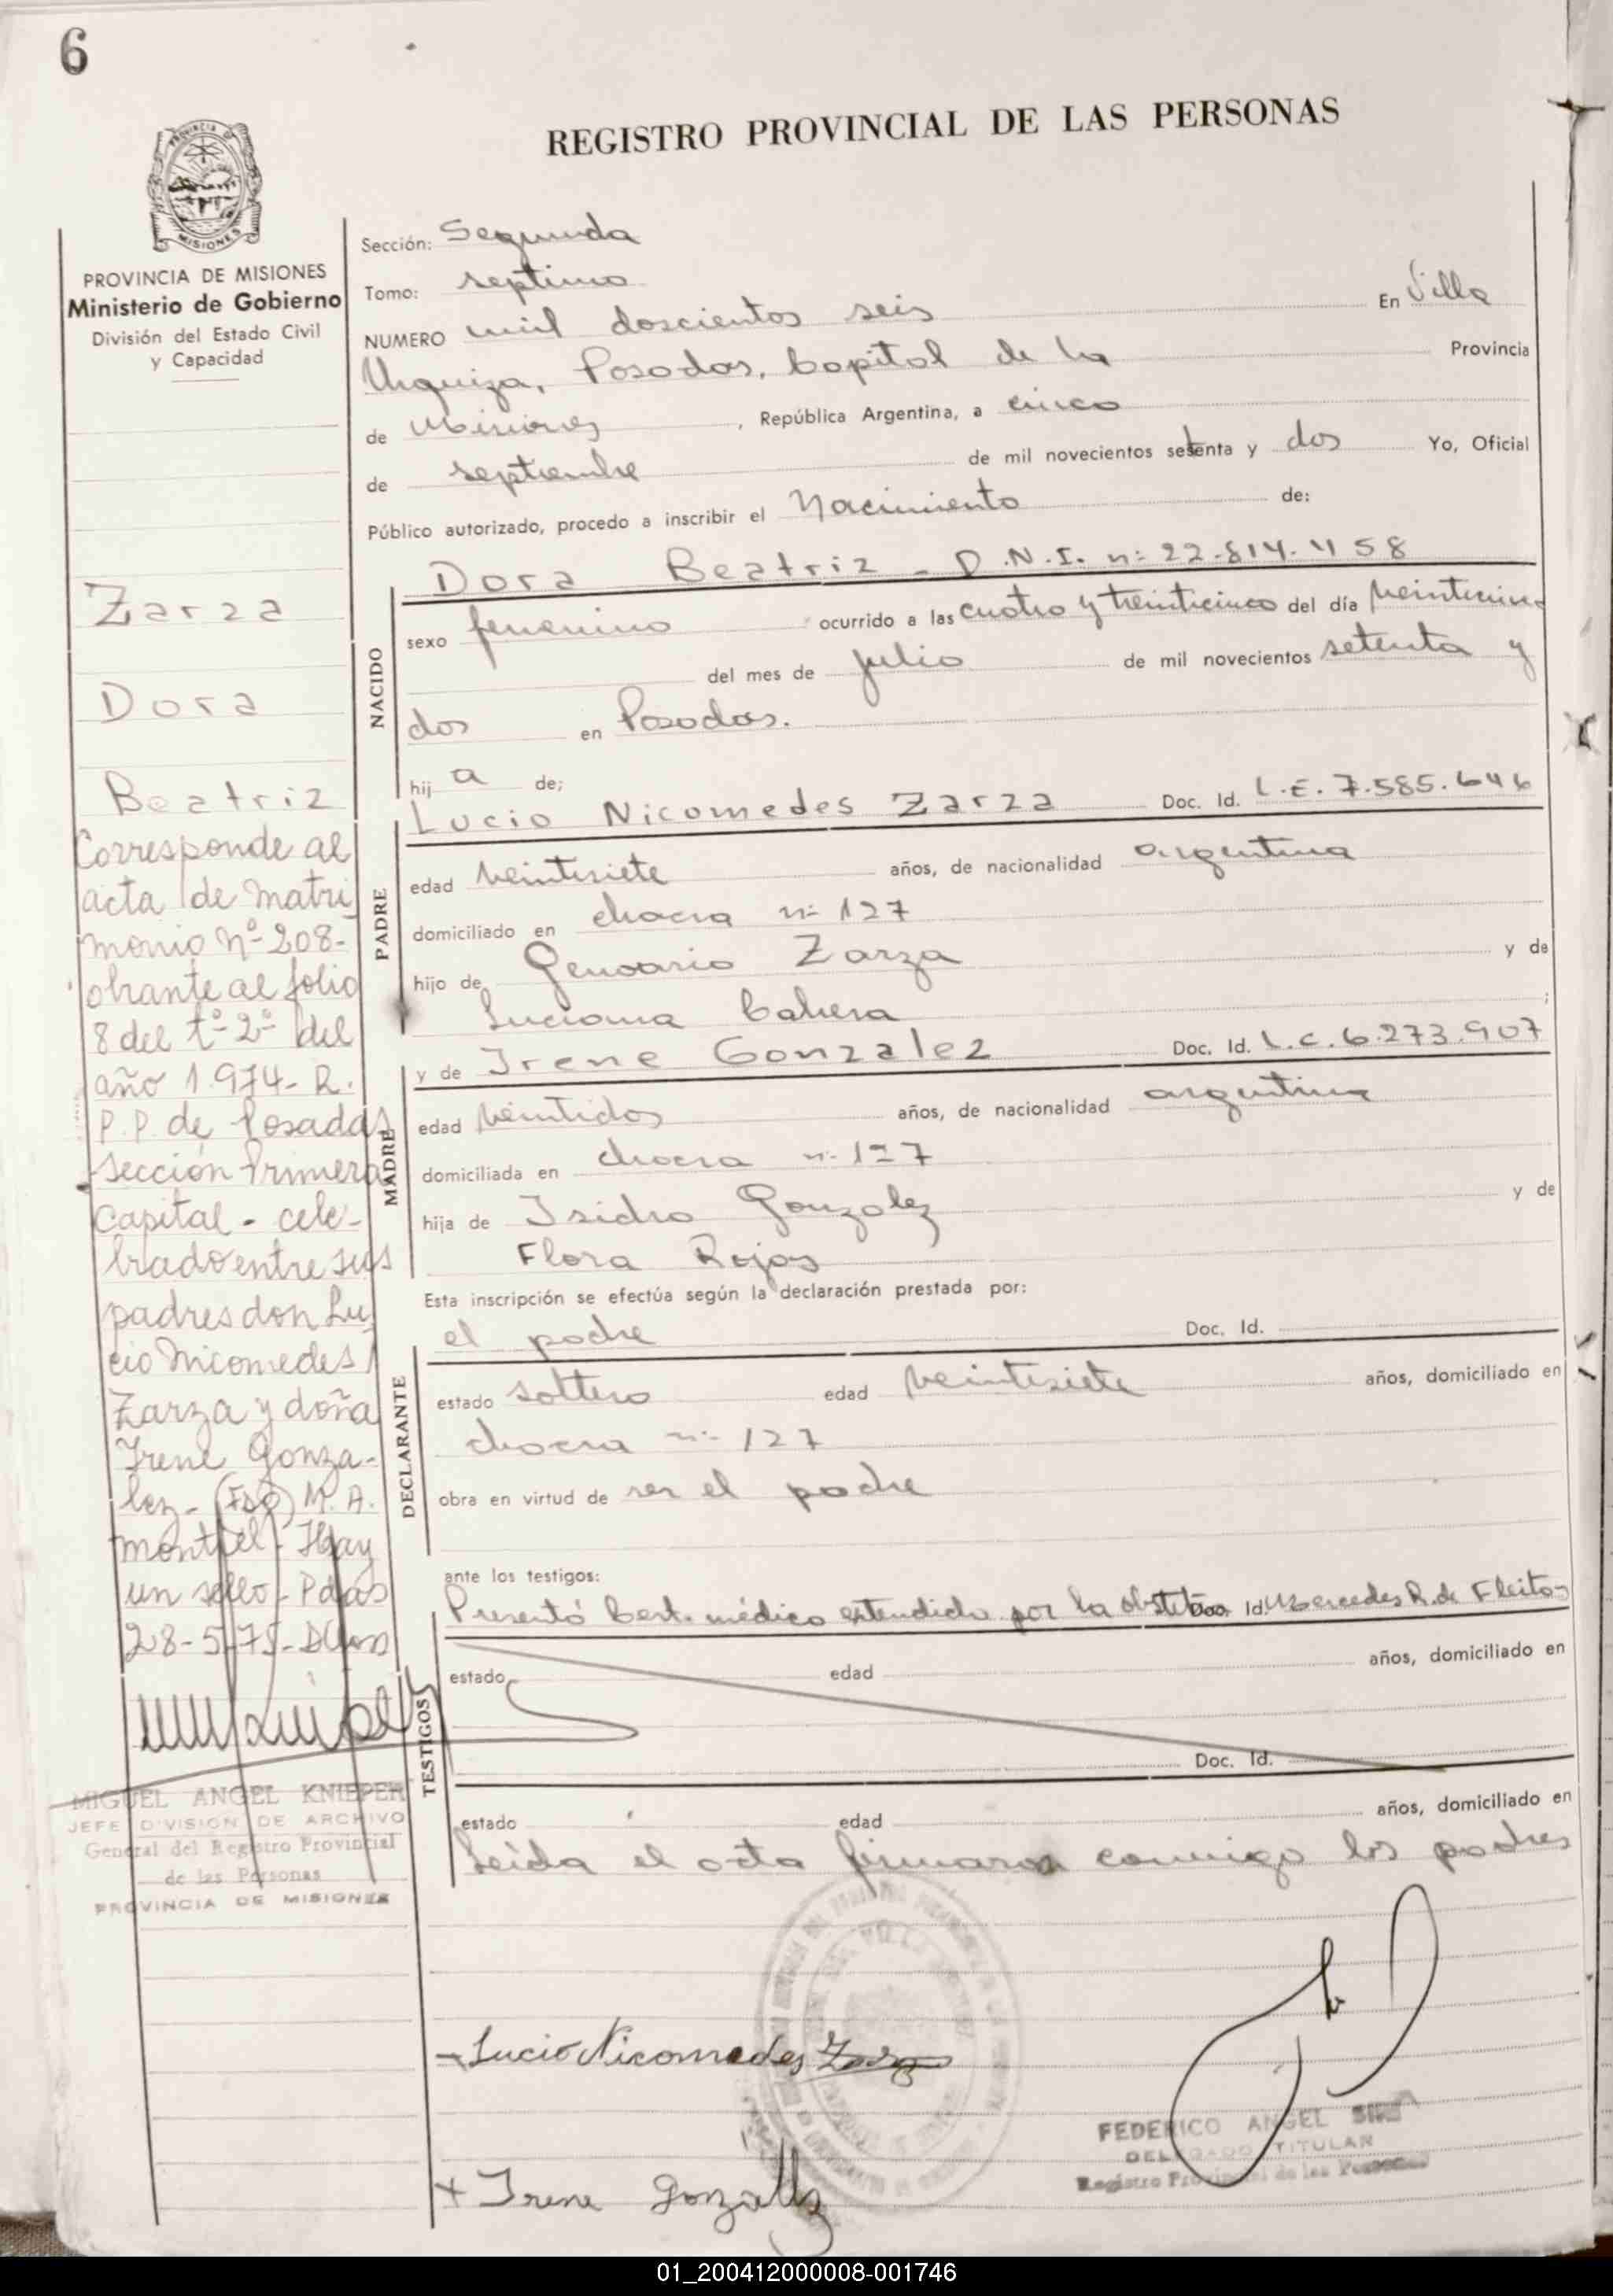 6
REGISTRO PROVINCIAL DE LAS PERSONAS
MISIONES
PROVINCIA DE MISIONES
Ministerio de Gobierno
División del Estado Civil
y Capacidad
Zarza
Dora
Beatriz
Corresponde al
acta de matri
monio nº 208-
obrante al folio
8 del tº 2º del
año 1.974- R.
P.P. de Posadas
Sección Primera
Capital - cele-
brado entre sus
padres don Lu
cio Nicomedes
Zarza y doña
Irene Gonza-
lez- (Fdo) M. A.
Montiel - Hay
un sello - Pdas
28-5-75-
MIGUEL ANGEL KNIEPER
JEFE DIVISION DE ARCHIVO
General del Registro Provincial
de las Personas
PROVINCIA DE MISIONES
Sección: Segunda
Tomo: septimo
NUMERO mil doscientos seis En Villa
Urquiza, Posadas, Capital de la Provincia
de Misiones, República Argentina, a cinco
de septiembre de mil novecientos setenta y dos Yo, Oficial
Público autorizado, procedo a inscribir el Nacimiento de:
NACIDO
Dora Beatriz - D.N.I. nº 22.814.458
sexo femenino ocurrido a las cuatro y treinticinco del día
del mes de julio de mil novecientos setenta y
dos en Posadas.
hija de;
PADRE
Lucio Nicomedes Zarza Doc. Id. L.E. 7.585.646
edad veintisiete años, de nacionalidad argentina
domiciliado en chacra nº 127
hijo de Genoario Zarza y de
Luciana Cabrera;
MADRE
y de Irene Gonzalez Doc. Id. L.C. 6.273.907
edad veintidos años, de nacionalidad argentina
domiciliada en chacra nº 127
hija de Isidro Gonzalez y de
Flora Rojas
Esta inscripción se efectúa según la declaración prestada por:
DECLARANTE
el padre Doc. Id.
estado soltero edad veintisiete años, domiciliado en
chacra nº 127
obra en virtud de ser el padre
ante los testigos:
TESTIGOS
Presentó Cert. médico extendido por la obstetra Doc. Id. Mercedes R. de Fleitas
estado edad años, domiciliado en
Doc. Id.
estado edad años, domiciliado en
Leida el acta firmaron conmigo los padres
- Lucio Nicomedes Zarza
+ Irene Gonzalez
FEDERICO ANGEL
DELEGADO TITULAR
Registro Provincial de las Personas
01_200412000008-001746